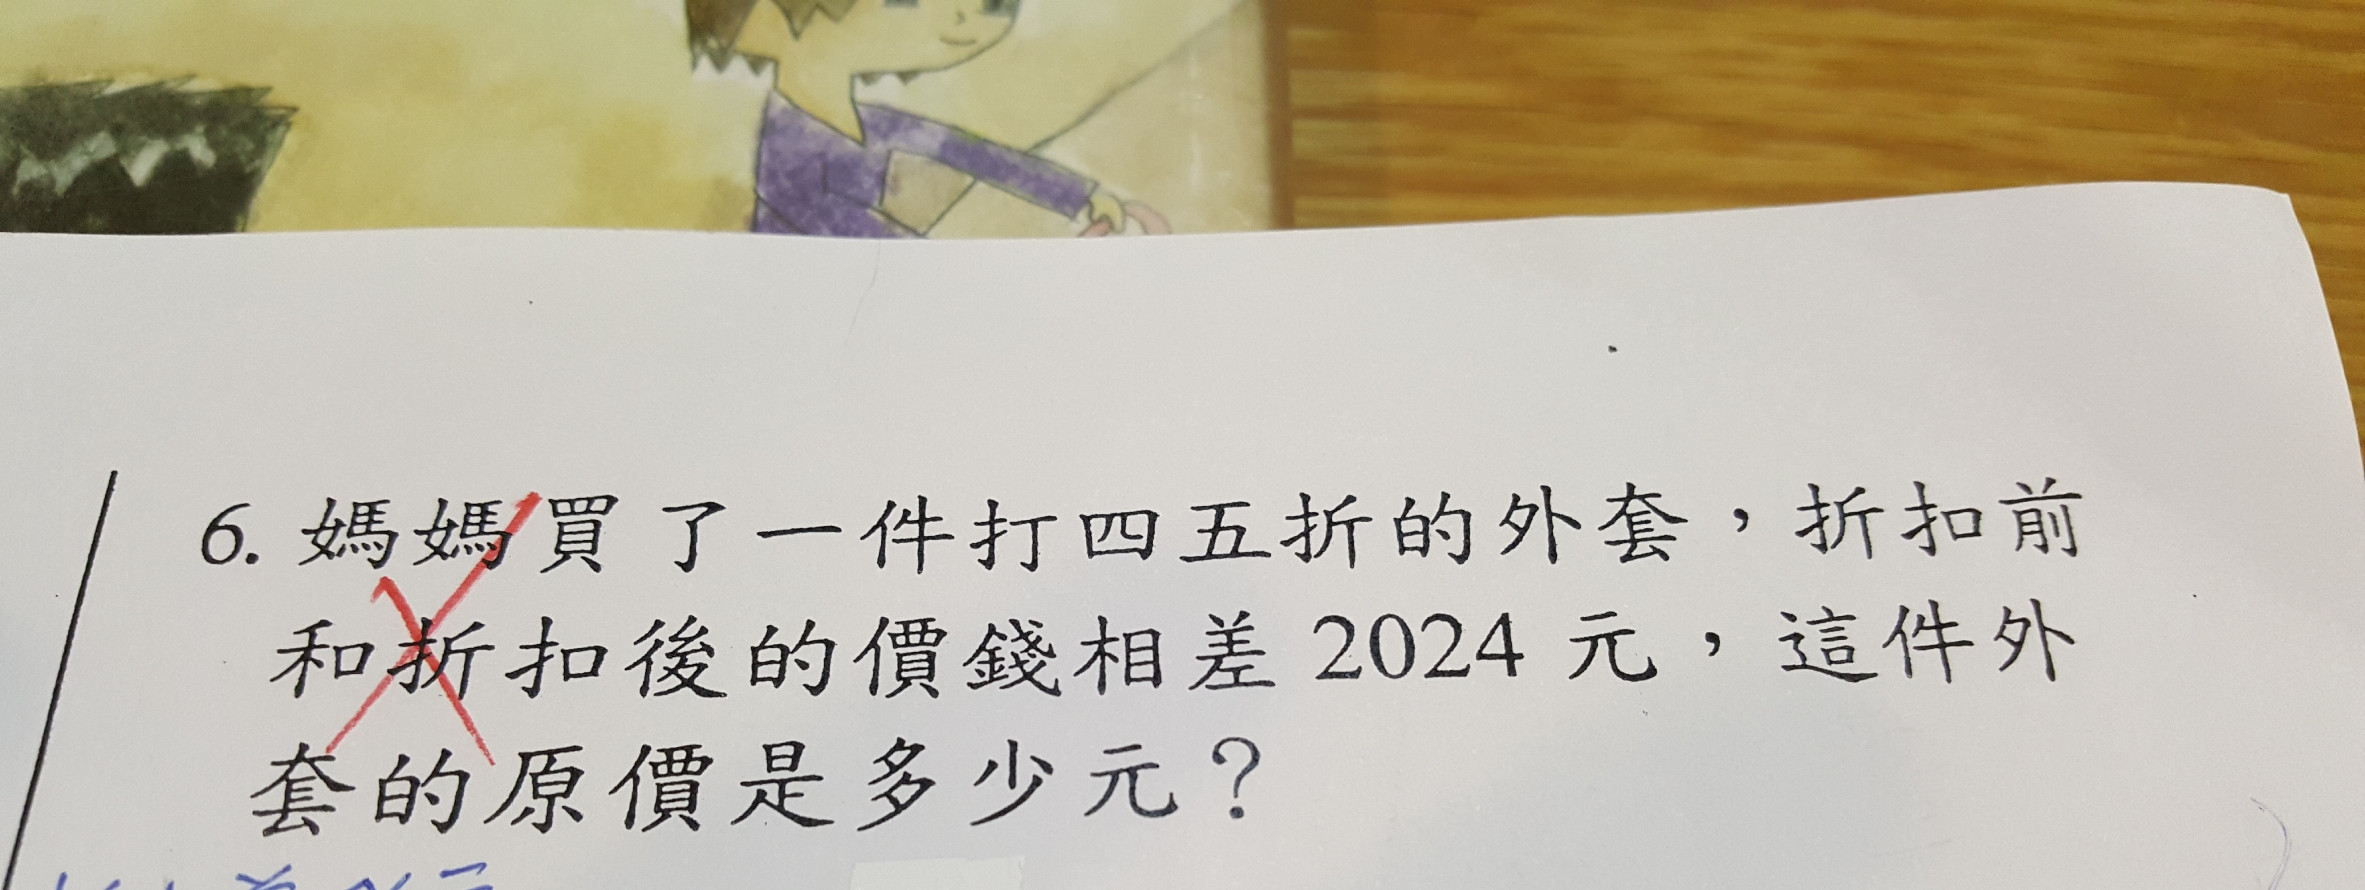 6. 媽媽買了一件打四五折的外套，折扣前
和折扣後的價錢相差 2024 元，這件外
套的原價是多少元？